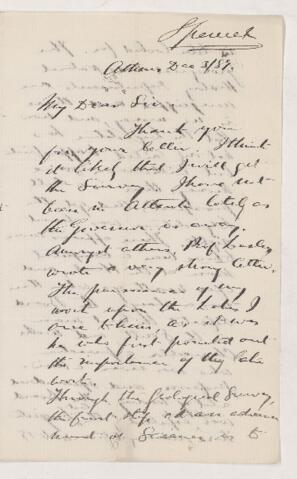 Spencer
Athens Dec 3/89.
My Dear Sir,
Thank you
for your letter. I think
it likely that I will get
the Survey. I have not
been in Atlanta lately as
the Governor is away.
Amongst others, Prof. Lesley
wrote a very strong letter.
The of my
work upon the Lakes I
owe to him, as it was
he who first pointed out
the importance of my late
work.
Through the Geological Survey
the first step
of Science is to